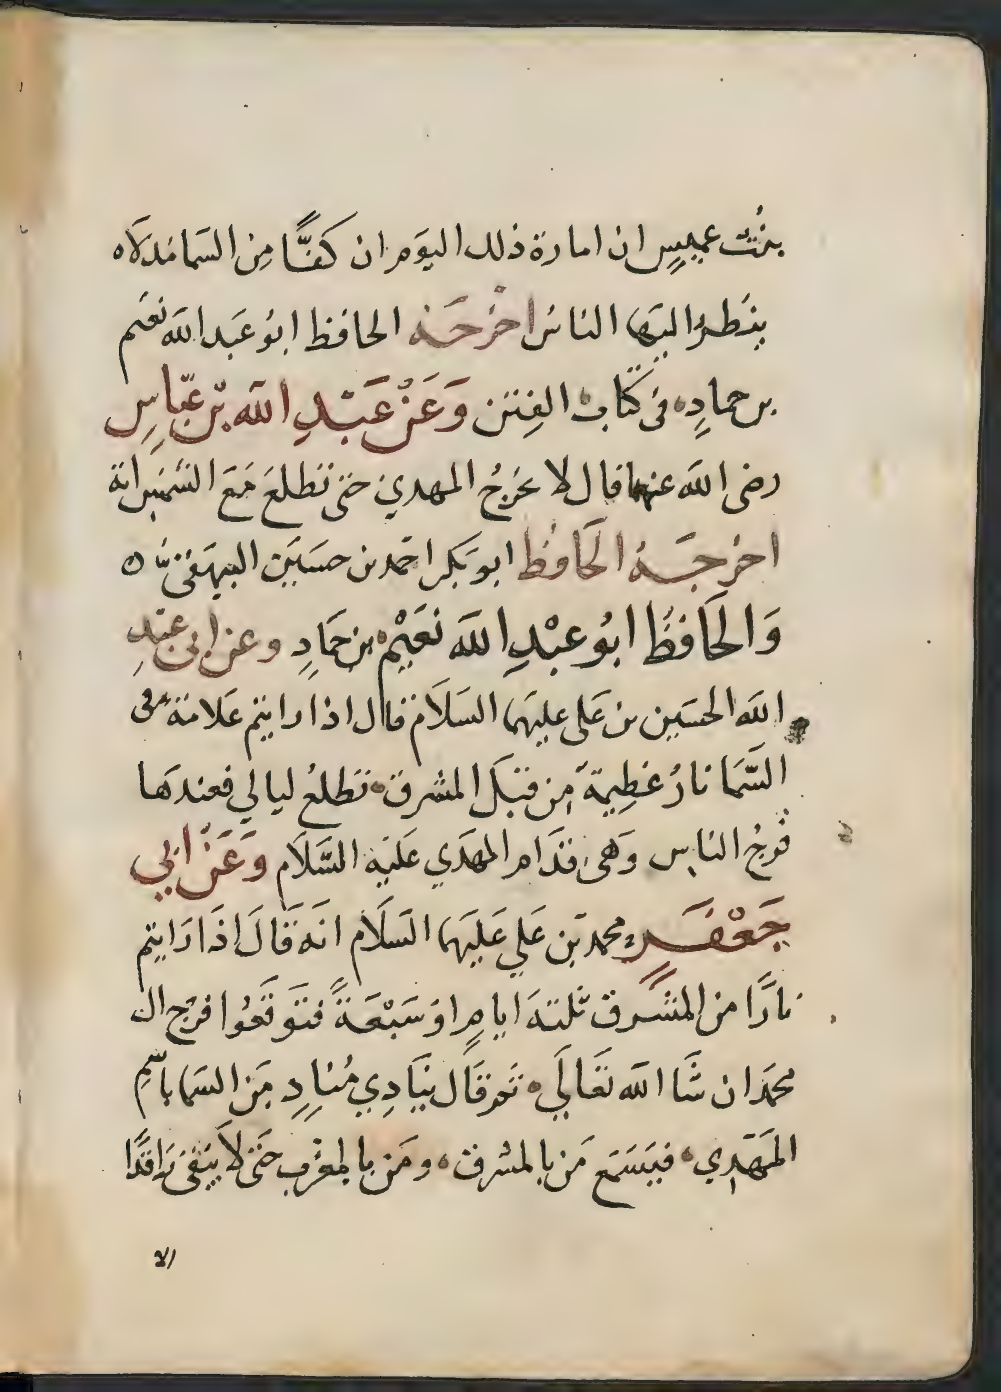 بنْت عميسٍ ان امارة ذلك اليوم ان كفًّا مِن السَما مدلاه
ينظرُ اليها الناسُ اخرَجَهُ الحافظ ابوُ عَبد الله نعَيم
بن حمادٍ في كتاب الفِتن وَعَنْ عَبْدِ الله بْن عبّاسٍ
رضى الله عنهما قال لا يخرجُ المهدي حتى تطلعَ مَعَ الشَّمْس اية
اخرجَهُ الحَافظُ ابو بَكر احمَد بن حسَيَن البيهَقيّ ه
وَالحَافظُ ابوُ عبْدِ الله نعَيْم بن حَمَادٍ وعن ابي عبْدِ
الله الحسَين بن عَلي عليهَما السَلَام قال اذا رايتم عَلامَة في
السَّمَا نارُ عَظِيمَة مِن قبَل المشرق تَطلعُ ليالي فعندهَا
فرجُ الناسِ وَهي قدَام المهَدي عَليْه السَّلَام وَعَنْ ابي
جَعْفَرٍ محمد بَن عَلي عَليَهما السَلَام انَه قَالَ اذَا رَايتم
نارًا من المشَرق ثلثَة ايامٍ اوْ سَبْعَةً فتَوَقعُوا فرَج ال
محمَد ان شَا الله تعَالَي ثم قَال يُنَادِي مُنادٍ مِنَ السَما باسْمِ
المَهَدِي فيَسَمَع مَن بالمشرق ومَن بالمغرْب حَتى لَا يَبقى رَاقدًا
الا